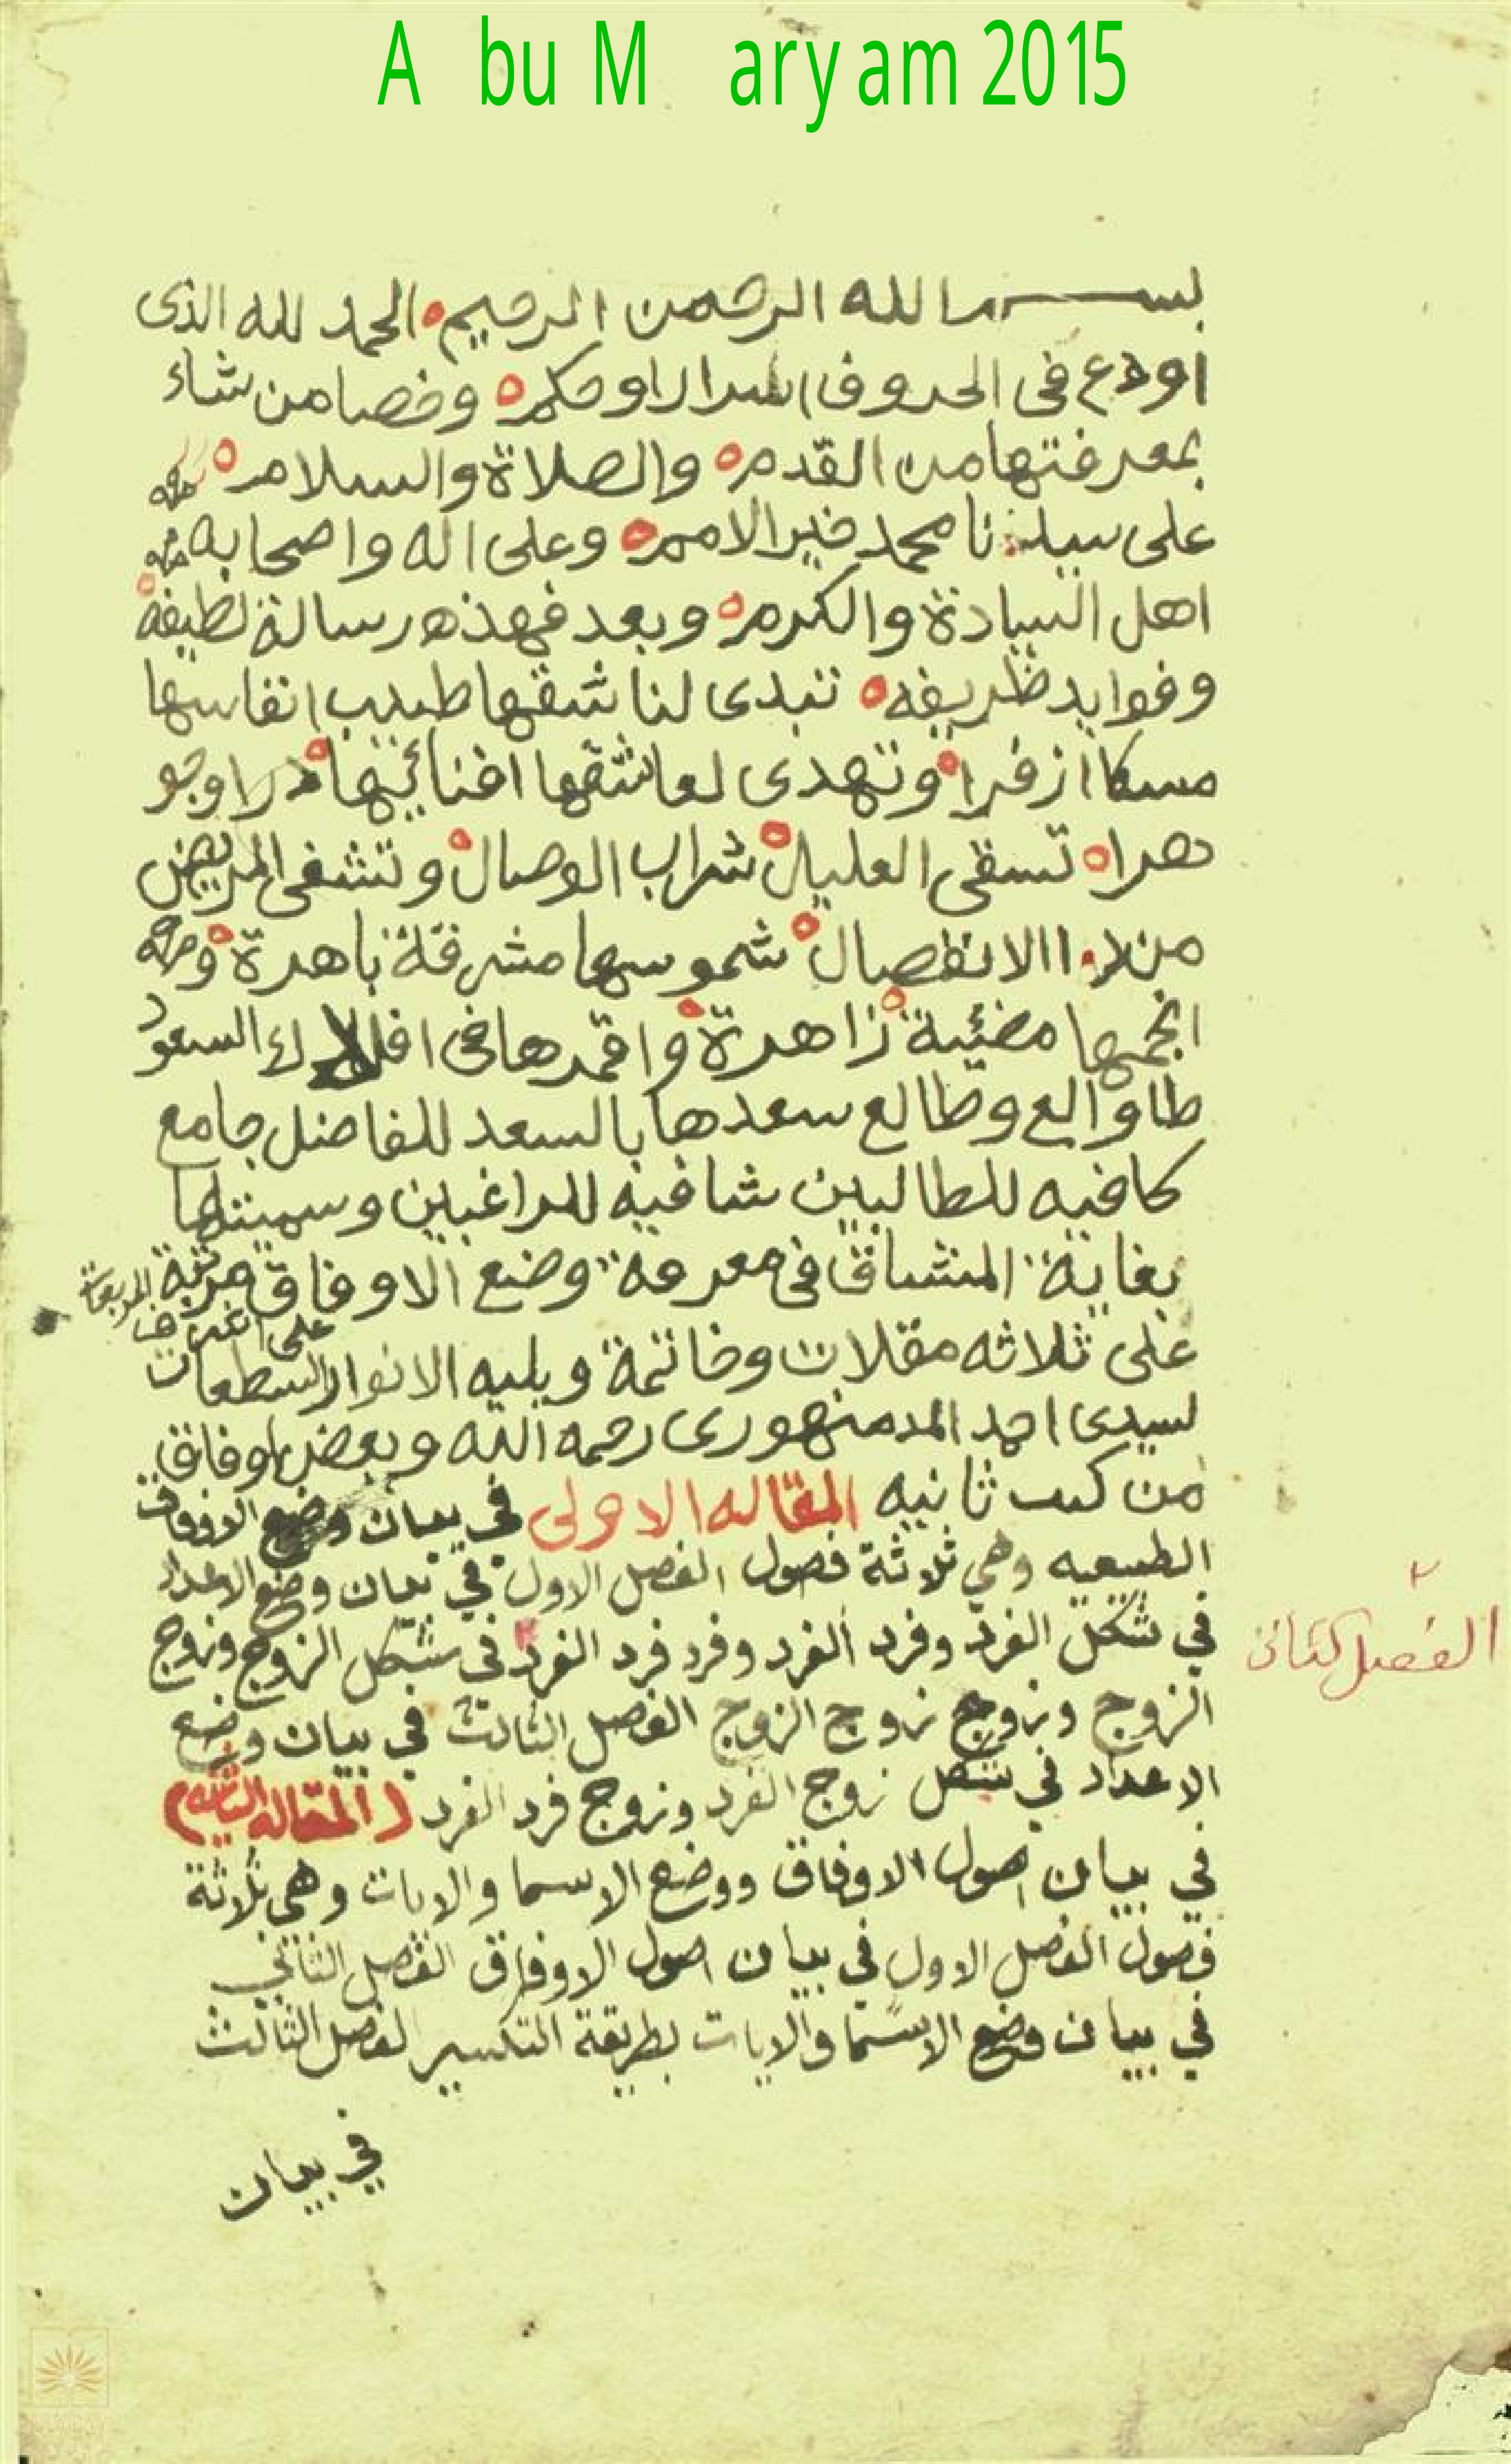 A bu M aryam 2015
بسم الله الرحمن الرحيم الحمد لله الذى
اودع فى الحروف اسرارا وحكم وخصا من شاء
بمعرفتها من القدم والصلاة والسلام
على سيدنا محمد خير الامم وعلى اله واصحابه
اهل السيادة والكرم وبعد فهذه رسالة لطيفة
وفوايد ظريفه تبدى لناشقها طيب انفاسها
مسكا ازفرا وتهدى لعاشقها درا وجو
هرا تسقى العليل شراب الوصال وتشفى المريض
من الانفصال شموسها مشرقة باهرة و
انجمها مضيئة زاهرة واقمرها فى افلاك السعود
طاوالع وطالع سعدها بالسعد للفاضل جامع
كافيه للطالبين شافيه للراغبين وسميتها
بغاية المشتاق فى معرفة وضع الاوفاق مرتبة
على ثلاثه مقلات وخاتمة ويليه الانوار السطعات
على
لسيدى احمد الدمنهورى رحمه الله وبعض اوفاق
من كتب ثانيه المقاله الاولى في بيان وضع الاوفاق
الطبيعيه وهي ثلاثة فصول الفصل الاول في بيان وضع الاعداد
في شكل الفرد وفرد الفرد وفرد فرد الفرد فى شكل الزوج وزوج
٢
الفصل الثانى
الزوج وزوج زوج الزوج الفصل الثالث في بيان وضع
الاعداد في شكل زوج الفرد وزوج فرد الفرد (المقاله الثانيه)
في بيان اصول الاوفاق ووضع الاسما والايات وهى ثلاثة
فصول الفصل الاول في بيان اصول الاوفاق الفصل الثاني
في بيان وضع الاسما والايات بطريقة التكسير الفصل الثالث
في بيان